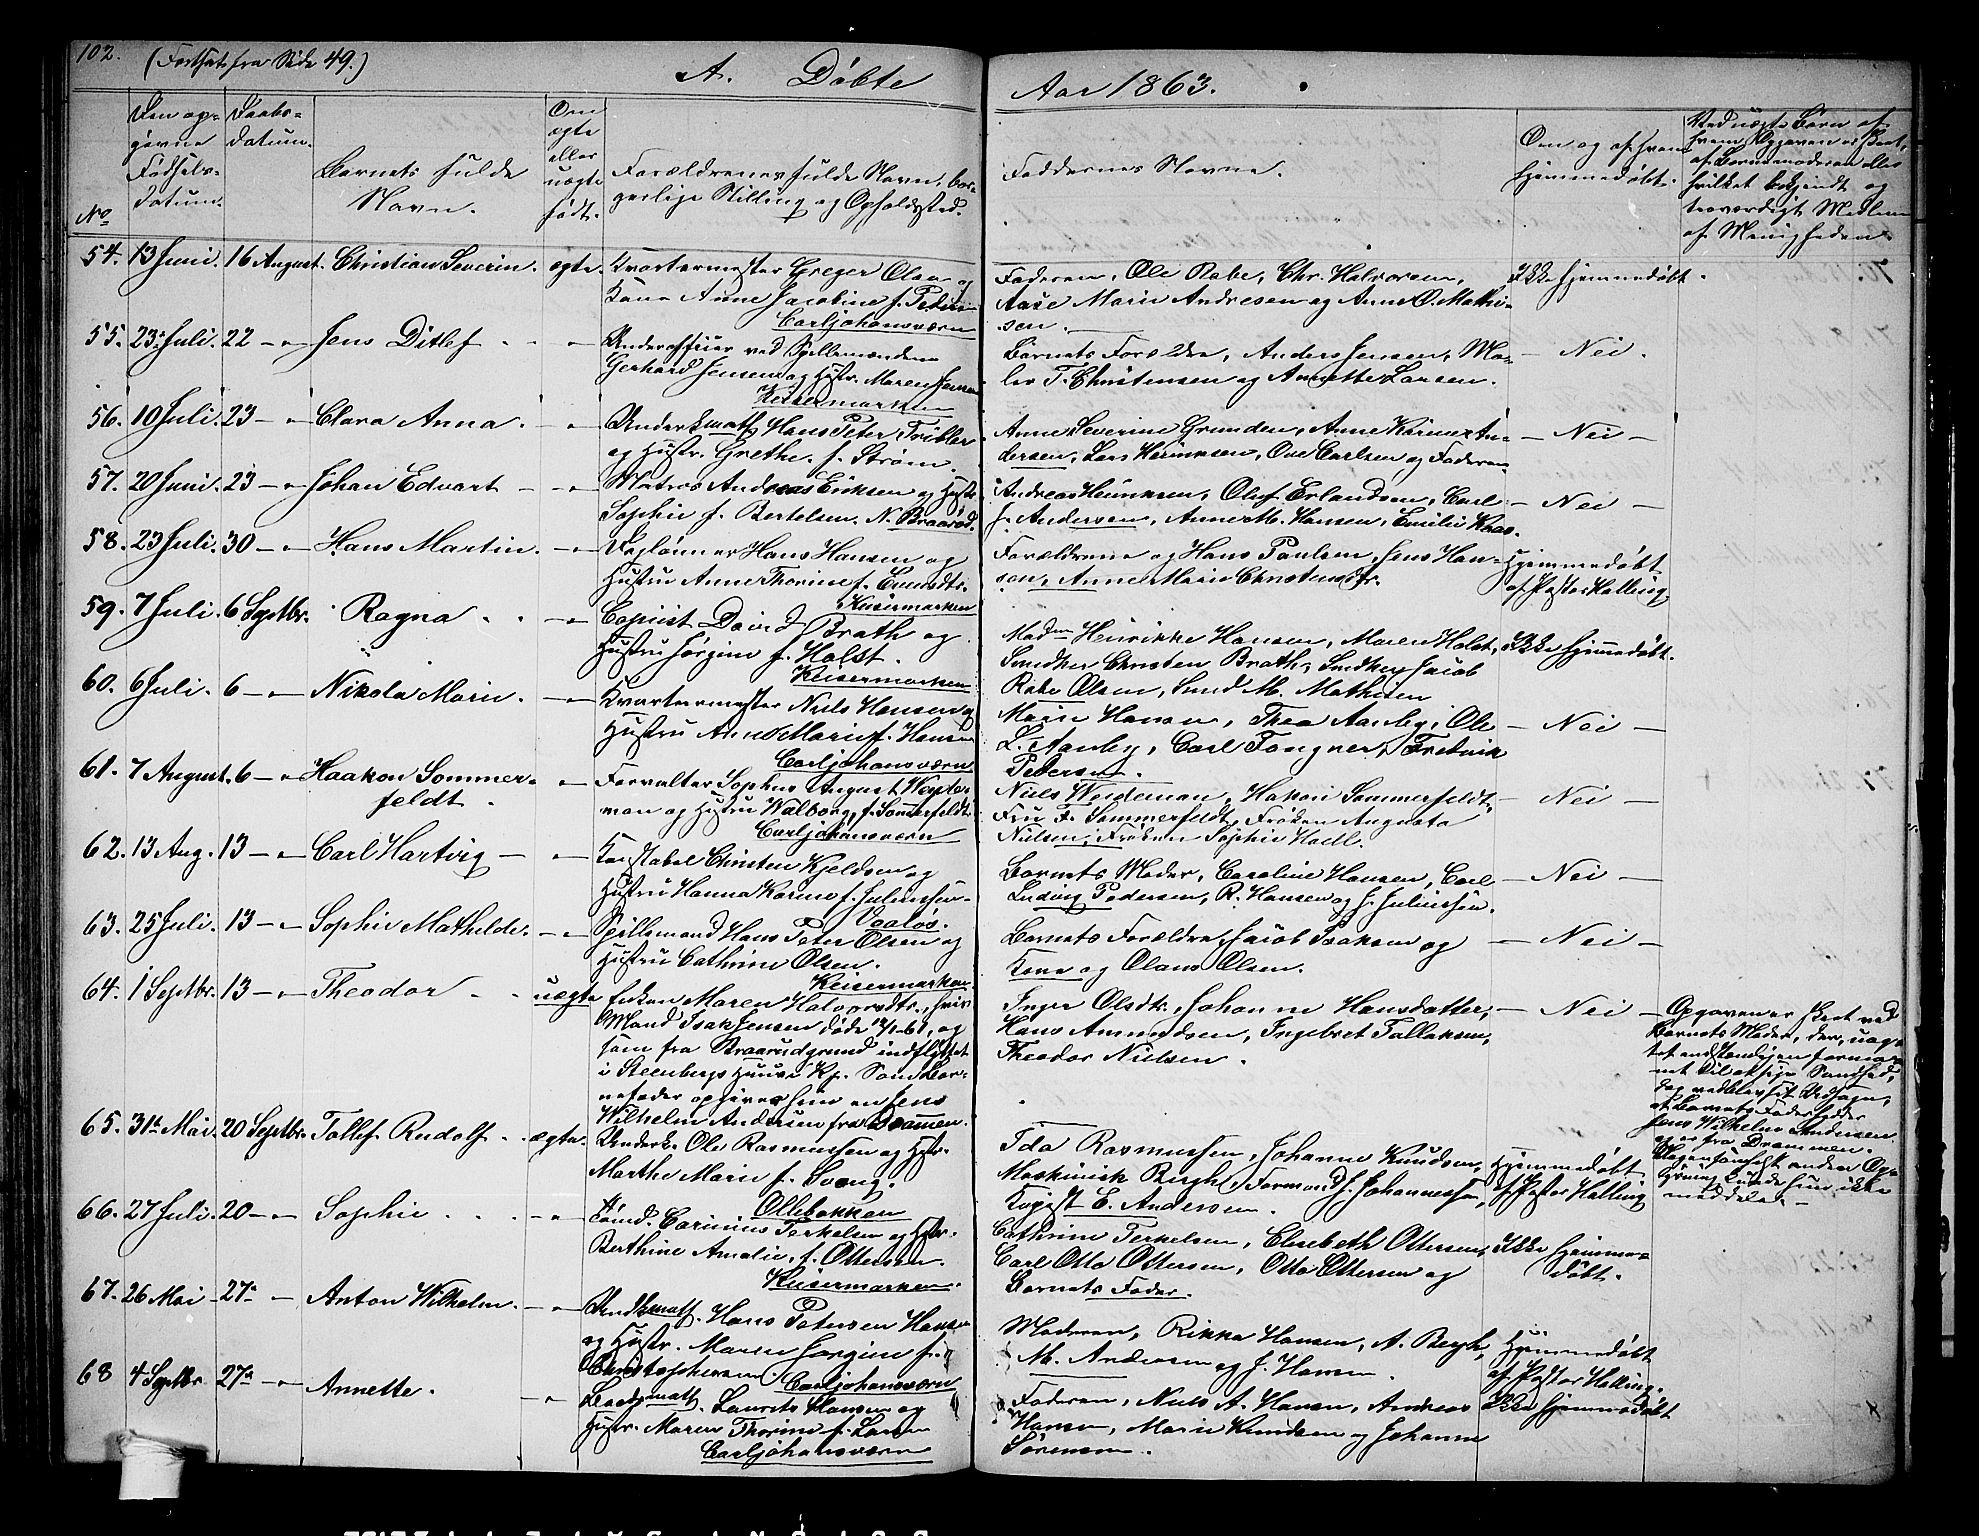 102. (Fortsat fra Side 49.)
A. Døbte
Aar 1863.
No
Den op-
givne
Fødsels-
datum.
Daabs-
datum.
Barnets fulde
Navn.
Om
ægte
eller
uægte
født.
Forældrenes fulde Navn, bor-
gerlige Stilling og Opholdssted.
Faddernes Navne.
Om og af hvem
hjemmedøbt.
Ved uægte Børn af
hvem Opgaven er skeet,
af Barnemoderen eller
hvilket bekjendt og
troværdigt Medlem
af Menigheden.
54. 13 Juni. 16 August. Christian Severin. ægte. Kvartermester Greger Olsen og
Kone Anne Jacobine f. Peders
Carljohansværn
Faderen, Ole Rabe, Chr. Halvorsen,
Aase Marie Andresen og Anne O. Mathi-
sen.
Ikke hjemmedøbt.
55. 23 Juli. 22 — Jens Ditlef
Underofficer ved Spillemændene
Gerhard Jensen og Hustr. Maren Jensen
Keisermarken
Barnets Forældre, Anders Jensen, Ma-
T. Christensen og Annette Larsen.
— Nei.
56. 10 Juli. 23 — Clara Anna.
Underkmath Hans Peter Tribler
og Hustr. Grethe f. Strøm.
Anne Severine Grunden, Anne Karine An-
dersen, Lars Henriksen, Ove Carlsen og Faderen
— Nei —
57. 20 Juni. 23 — Johan Edvart
Matros Andreas Eriksen og Hustr.
Sophie f. Bertelsen. N. Braarød.
Andreas Henriksen, Oluf Erlandsen, Carl
J. Andersen, Anne M. Hansen, Emilie Kaas.
— Nei —
58. 23 Juli. 30 — Hans Martin.
Daglønner Hans Hansen og
Hustru Anne Thorine f. Enersdtr.
Keisermarken
Forældrene og Hans Paulsen, Jens Han-
sen, Anne Marie Christensdr.
Hjemmedøbt
af Pastor Halling
59. 7 Juli. 6 Septbr. Ragna
Copiist David Brath og
Hustru Jørgine f. Holst.
Keisermarken
Madm Henrikke Hansen, Maren Holst,
Snedker Christen Brath, Snedker Jacob
Rabe Olsen, Smed M. Mathisen
Ikke hjemmedøbt.
60. 6 Juli. 6 — Nikola Marie.
Kvartermester Niels Hansen og
Hustru Anne Marie f. Hansen
Carljohansværn
Marie Hansen, Thea Aanby, Ole
L. Aanby, Carl Tongner, Fredrik
Pedersen.
— Nei —
61. 7 August. 6 — Haakon Sommer-
feldt.
Forvalter Sophus August Weide-
man og Hustru Walborg f. Sommerfeldt
Carljohansværn
Niels Weideman, Hakon Sommerfeldt,
Fru F. Sommerfeldt, Frøken Augusta
Nielsen, Frøken Sophie Hadl.
— Nei —
62. 13 Aug. 13 — Carl Hartvig —
Konstabel Christen Kjeldsen og
Hustru Hanna Karine f. Juliussen
Vaaløs.
Barnets Moder, Caroline Hansen, Carl
Ludvig Pedersen, R. Hansen og J. Juliussen.
— Nei —
63. 25 Juli. 13 — Sophie Mathilde.
Spillemand Hans Peter Olsen og
Hustru Cathrine Olsen.
Keisermarken
Barnets Forældre, Jacob Isaksen og
Kone og Olaus Olsen.
— Nei —
64. 1 Septbr. 13 — Theodor uægte
Enken Maren Halvorsdtr., hvis
Mand Isak Jensen døde 12/1-61, og
som fra Braarudgrund indflyttet
i Steenbergs Huus i Kp. Som Bar-
nefader opgives hun en Jens
Wilhelm Andersen fra Drammen.
Inger Olsdtr., Johanne Hansdatter,
Hans Amundsen, Ingebret Tallaksen,
Theodor Nielsen.
— Nei —
Opgaven er skeet ved
Barnets Moder, der, uag-
tet indstændigen forma-
net til at sige Sandhed,
dog vedblev sit Udsagn,
at Barnets Fader heder
Jens Wilhelm Andersen
og er fra Drammen.
Nogensomhelst anden Op-
lysning kunde hun ikke
meddele. —
65. 31te Mai. 20 Septbr. Tollef Rudolf. ægte.
Underk. Ole Rasmussen og Hstr.
Marthe Marie f. Svang.
Ollebakken
Ida Rasmussen, Johanne Knudsen,
Maskinist Bergh, Formand J. Johannessen,
Kopist E. Andersen.
Hjemmedøbt
af Pastor Halling
66. 27 Juli. 20 — Sophie
Tømd. Carinius Terkelsen og Hstr.
Berthine Amalie, f. Ottersen.
Keisermarken.
Cathrine Terkelsen, Elisebeth Ottersen,
Carl Otto Ottersen, Otto Ottersen og
Barnets Fader.
Ikke hjemme-
døbt.
67. 26 Mai 27 — Anton Wilhelm.
Undkmatf. Hans Petersen Hansen
og Hustr. Maren Jørgine f.
Christophersen Carljohansværn
Moderen, Rikka Hansen, A. Bergh,
M. Andersen og J. Hansen.
Hjemmedøbt
af Pastor Halling.
68 4 Septbr. 27 — Annette.
Baadsmatf. Laurits Hansen og
Hustr. Maren Thorine f. Larsen
Carljohansværn
Faderen, Niels A. Hansen, Andreas
Hansen, Marie Knudsen og Johanne
Sørensen.
Ikke hjemmedøbt